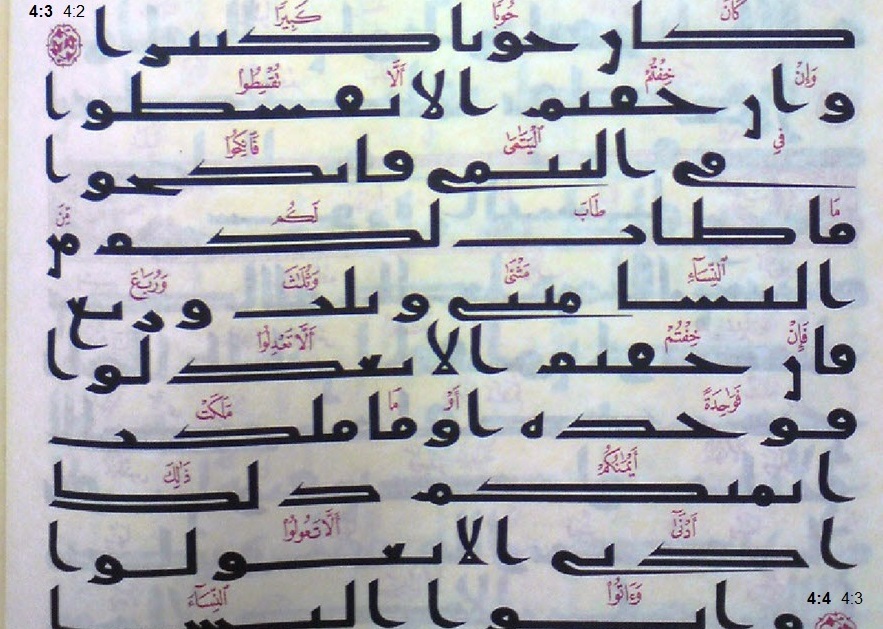 4:3 4:2
كَانَ حُوبًا كَبِيرًا
كان حوبا كبيرا
وَإِنْ خِفْتُمْ أَلَّا تُقْسِطُوا
وان خفتم الا تقسطوا
فِي الْيَتَٰمَىٰ فَانكِحُوا
في اليتمى فانكحوا
مَا طَابَ لَكُم مِّنَ
ما طاب لكم من
النِّسَآءِ مَثْنَىٰ وَثُلَٰثَ وَرُبَٰعَ
النسا مثنى وثلث وربع
فَإِنْ خِفْتُمْ أَلَّا تَعْدِلُوا
فان خفتم الا تعدلوا
فَوَٰحِدَةً أَوْ مَا مَلَكَتْ
فوحده او ما ملكت
أَيْمَٰنُكُمْ ذَٰلِكَ
ايمنكم ذلك
أَدْنَىٰٓ أَلَّا تَعُولُوا
ادنى الا تعولوا
وَءَاتُوا النِّسَآءَ
واتوا النسا
4:4 4:3